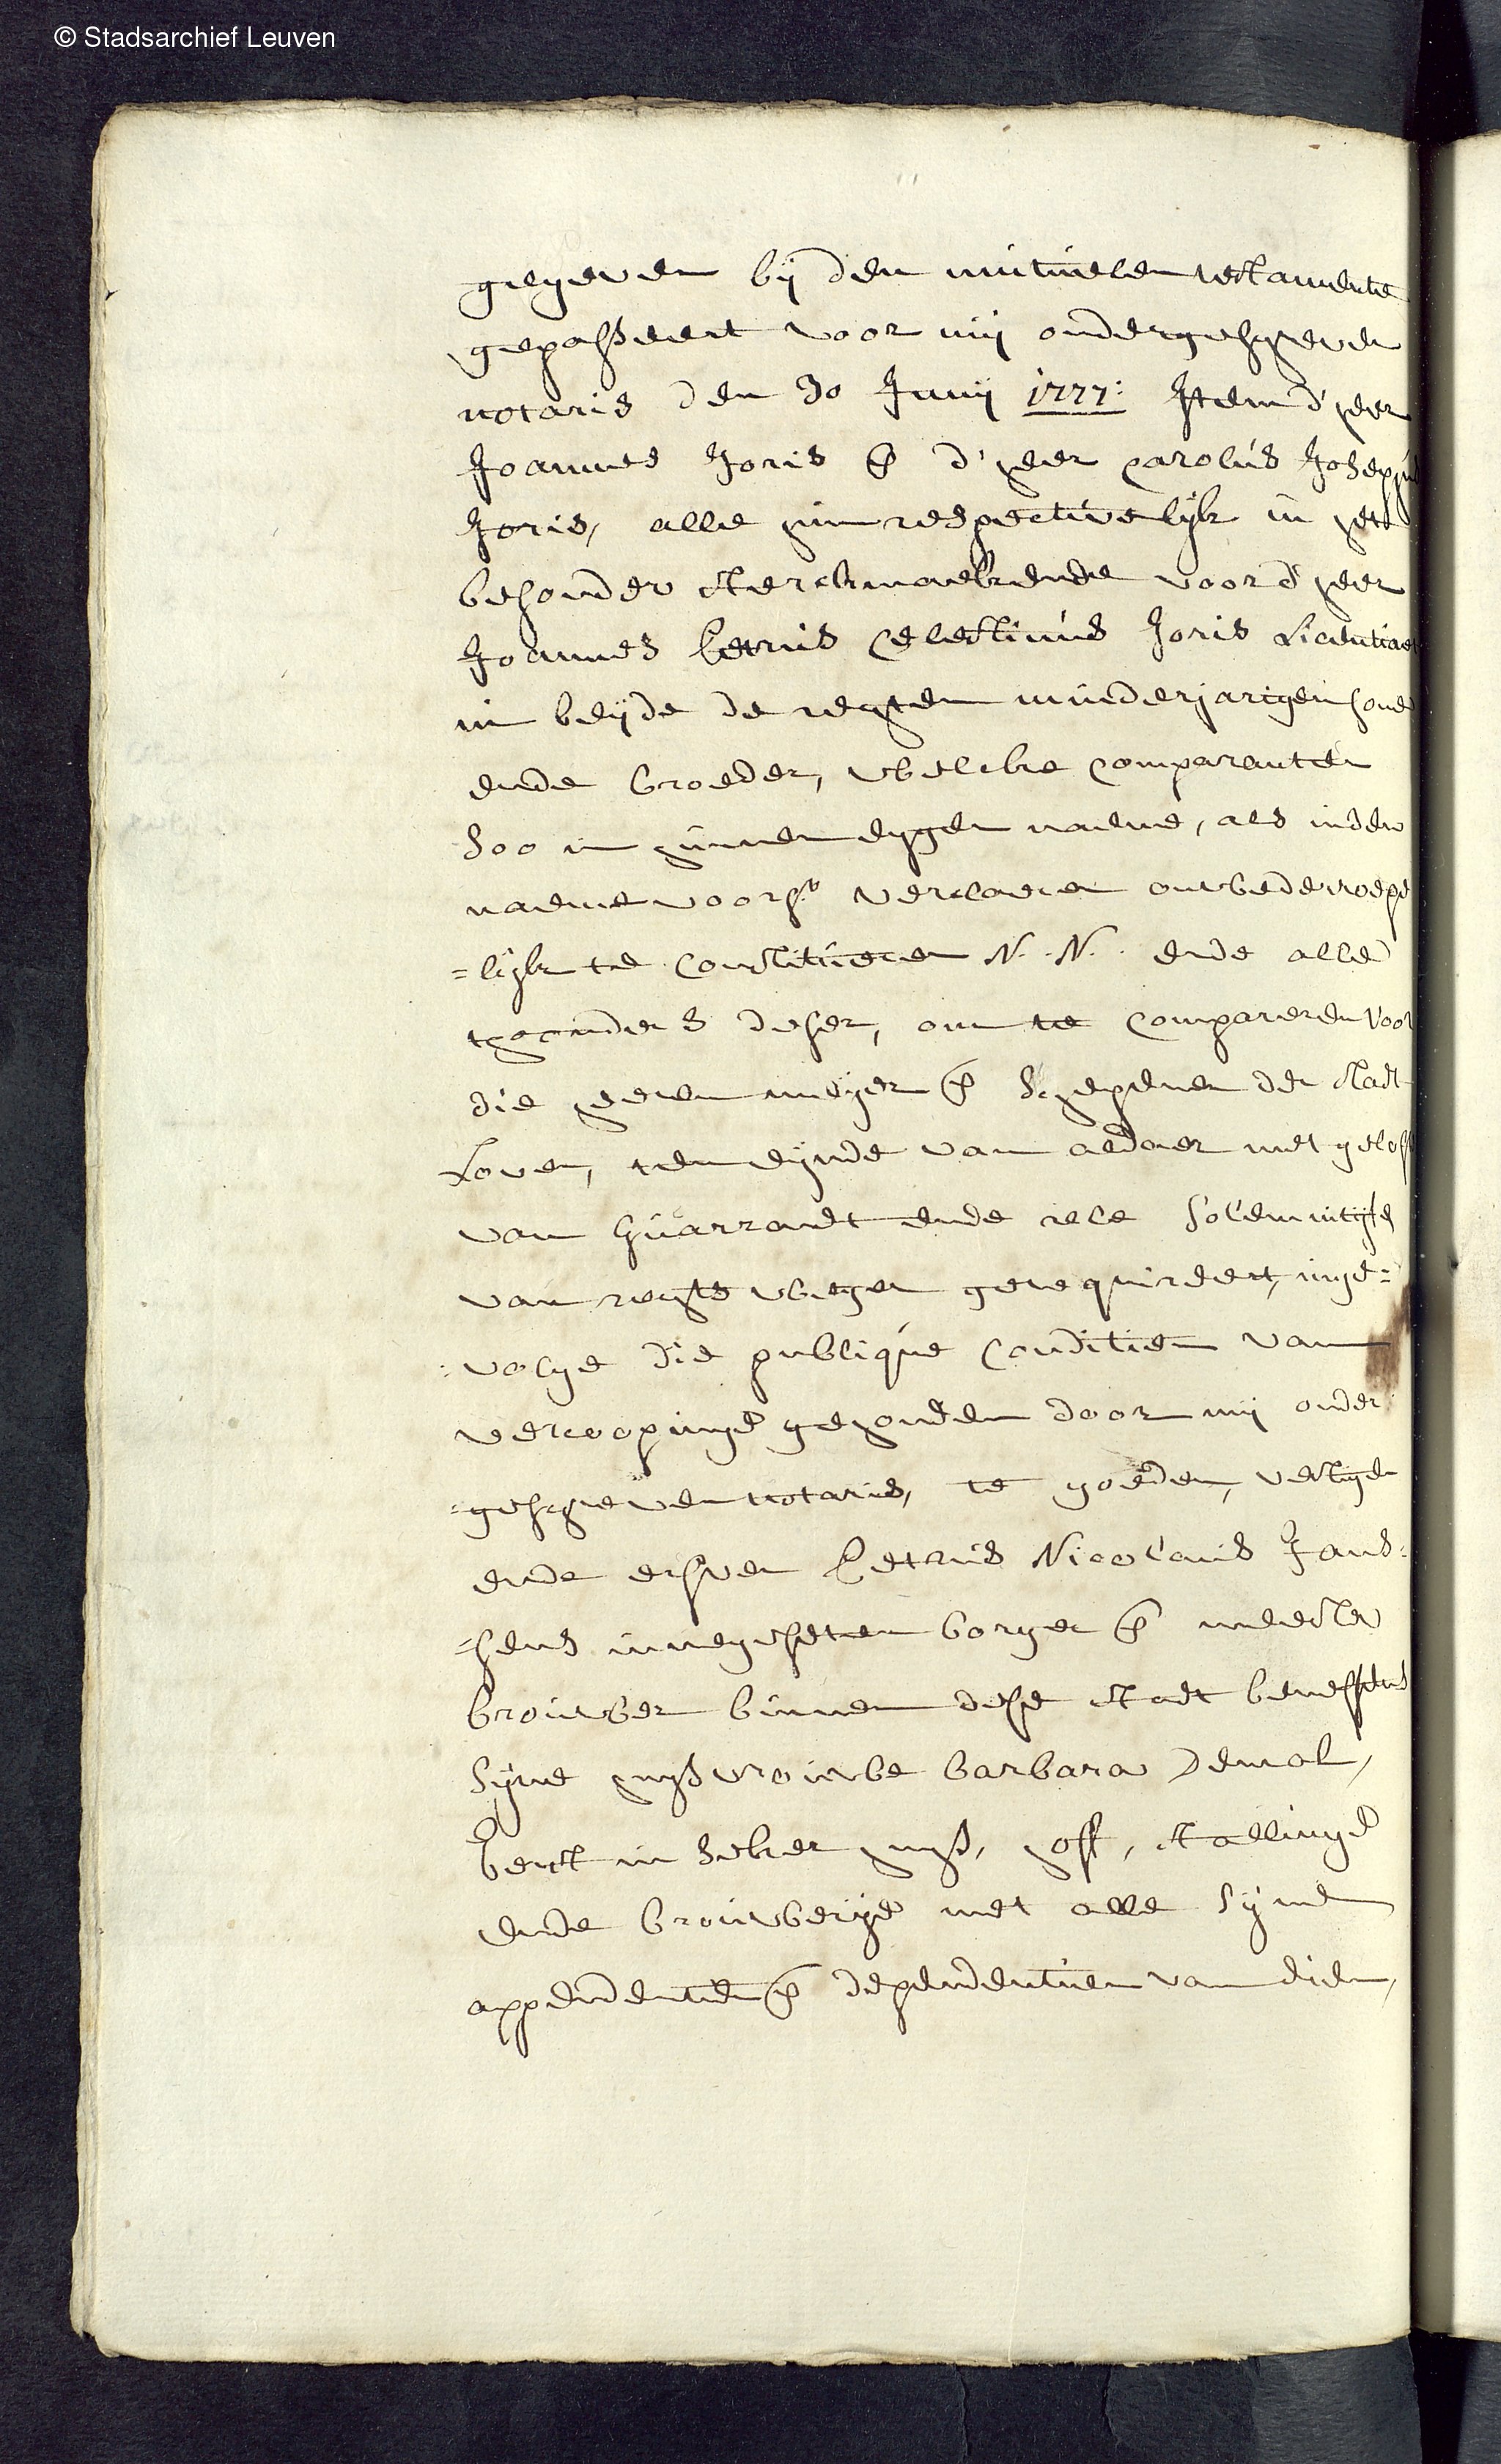 © Stadsarchief Leuven
gegeven bij den mutuelen testamente
gepasseert voor mij ondergeschreven
notaris den 30 Junij 1777: Item d'heer
Joannes Joris & d'heer Carolus Josephus
Joris, alle hun respectivelijk in het
besonder sterckmaekende voor d'heer
Joannes Petrus Celestinus Joris Licentiaet
in beijde de rechten minderjarigen sone
ende broeder, welcke comparanten
soo in hunnen eygen naeme, als inder
naeme voors: verclaeren onwederroepe
=lijk te constitueren N. N. ende alle
thoonders deser, om te compareren voor
die heeren meijer & schepenen der stadt
Loven, ten eynde van aldaer met geloft
van guarrandt ende alle solemnityts
van rechts wegen gerequireert, inge=
:volge die publique conditien van
vercoopinge gehouden door mij onder
=geschreven notaris, te goeden, vestigen
ende erfven Petrus Nicolaus Jans=
=sens innegeseten borger & meester
brouwer binnen dese stadt beneffens
syne huysvrouwe Barbara Demol,
Eerst in seker huys, hoff, stallinge
ende brouwerije met alle syne
appendentien & dependentien van dien,